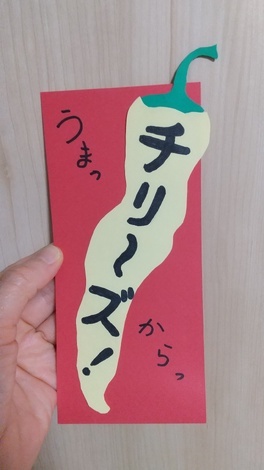 うまっ
チリ〜ズ!
からっ